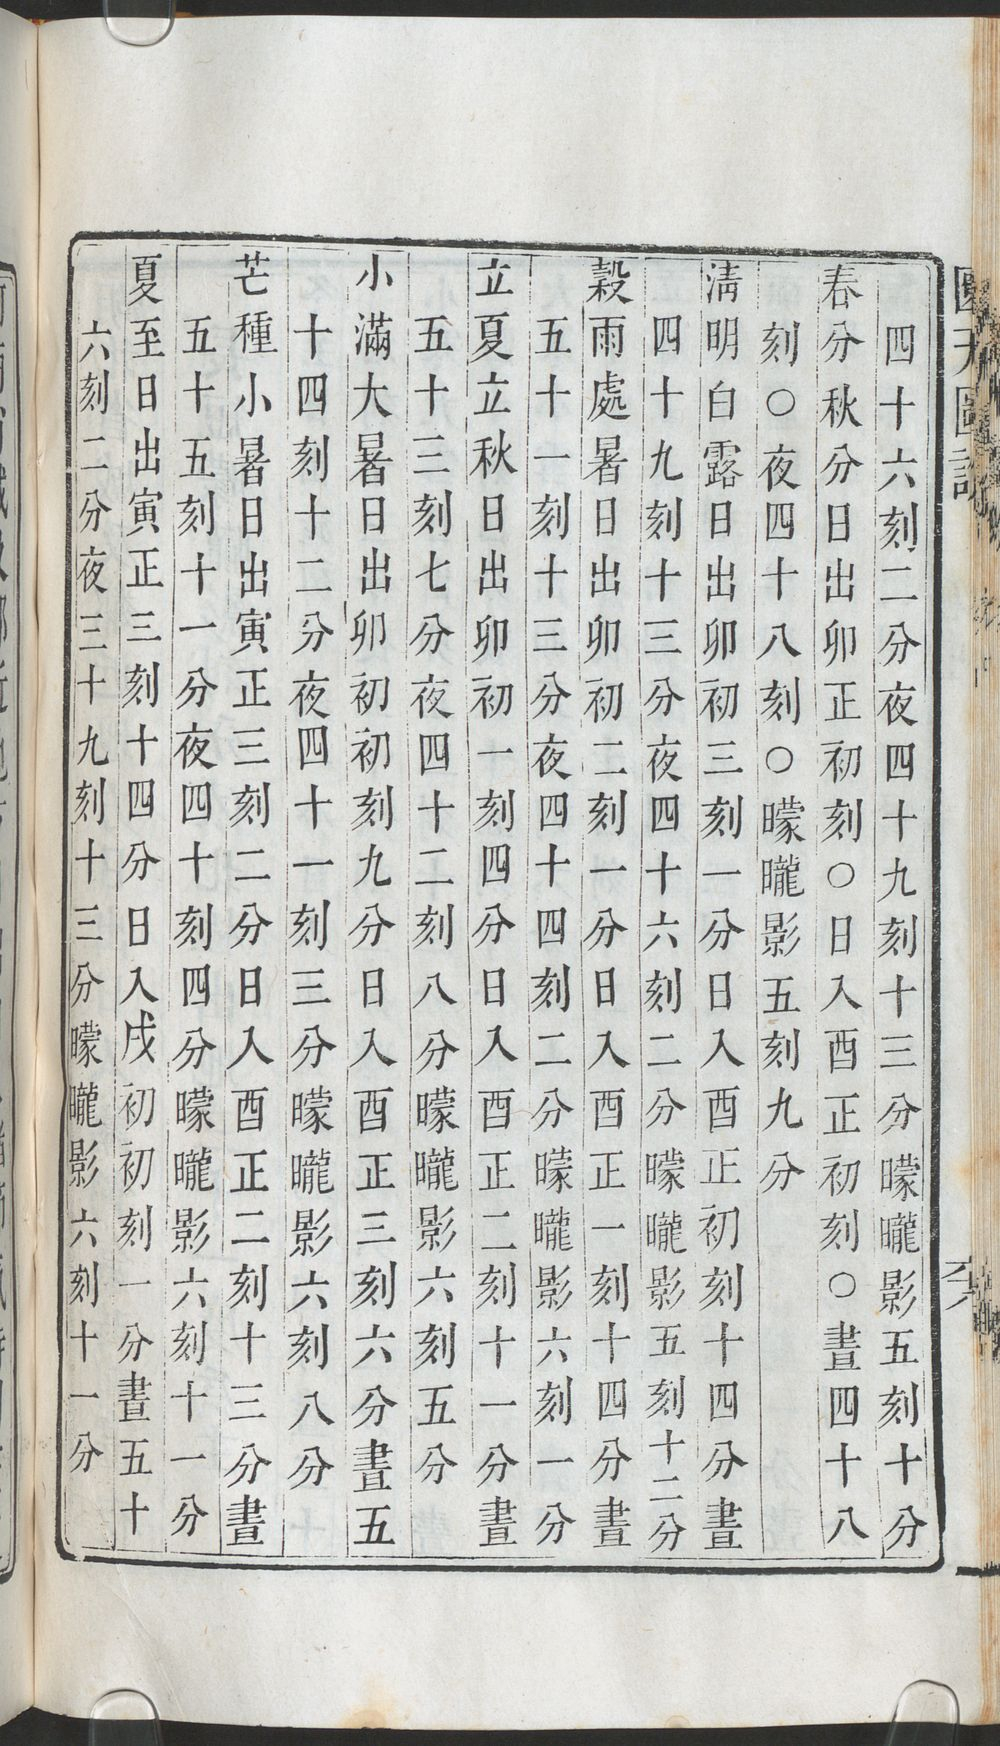 四十六刻二分夜四十九刻十三分曚曨影五刻十分
春分秋分日出卯正初刻〇日入酉正初刻〇晝四十八
刻〇夜四十八刻〇曚曨影五刻九分
淸明白露日出卯初三刻一分日入酉正初刻十四分晝
四十九刻十三分夜四十六刻二分曚曨影五刻十二分
穀雨處暑日出卯初二刻一分日入酉正一刻十四分晝
五十一刻十三分夜四十四刻二分曚曨影六刻一分
立夏立秋日出卯初一刻四分日入酉正二刻十一分晝
五十三刻七分夜四十二刻八分曚曨影六刻五分
小滿大暑日出卯初初刻九分日入酉正三刻六分晝五
十四刻十二分夜四十一刻三分曚曨影六刻八分
芒種小暑日出寅正三刻二分日入酉正二刻十三分晝
五十五刻十一分夜四十刻四分曚曨影六刻十一分
夏至日出寅正三刻十四分日入戌初初刻一分晝五十
六刻二分夜三十九刻十三分曚曨影六刻十一分